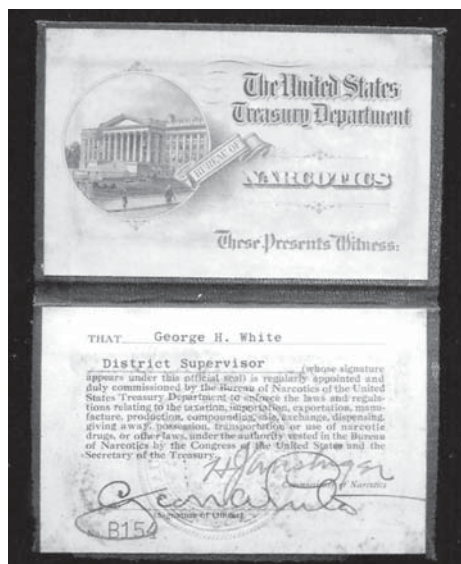 The United States
Treasury Department
BUREAU OF
NARCOTICS
These Presents Witness:
THAT George H. White
District Supervisor (whose signature
appears under this official seal) is regularly appointed and
duly commissioned by the Bureau of Narcotics of the United
States Treasury Department to enforce the laws and regula-
tions relating to the taxation, importation, exportation, manu-
facture, production, compounding, sale, exchange, dispensing,
giving away, possession, transportation or use of narcotic
drugs, or other laws, under the authority vested in the Bureau
of Narcotics by the Congress of the United States and the
Secretary of the Treasury.
H J Anslinger
Commissioner of Narcotics
(Signature of Officer)
B154